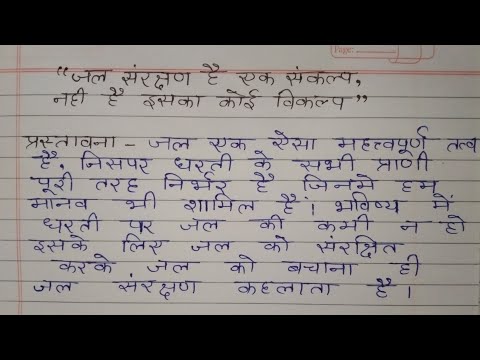 Page:
“जल संरक्षण है एक संकल्प,
नही है इसका कोई विकल्प”
प्रस्तावना – जल एक ऐसा महत्वपूर्ण तत्व
है, जिसपर धरती के सभी प्राणी
पूरी तरह निर्भर है जिनमे हम
मानव भी शामिल है। भविष्य में
धरती पर जल की कमी न हो
इसके लिए जल को संरक्षित
करके जल को बचाना ही
जल संरक्षण कहलाता है।